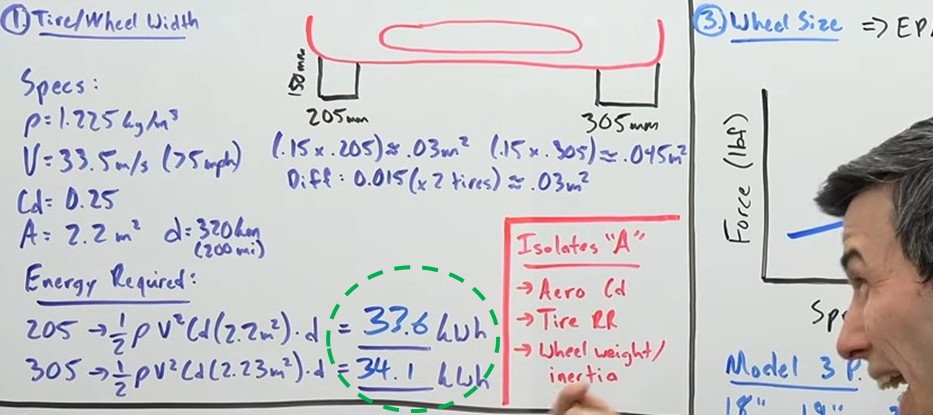 ① Tire/Wheel Width
Specs:
ρ=1.225 kg/m³
V=33.5m/s (75mph)
Cd=0.25
A=2.2m² d=320km
(200mi)
150mm
205mm
305mm
(.15x.205)≈.03m² (.15x.305)≈.045m²
Diff: 0.015(x2 tires)≈.03m²
Energy Required:
205 →½ρV²Cd(2.2m²)·d = 33.6 kWh
305 →½ρV²Cd(2.23m²)·d = 34.1 kWh
Isolates "A"
→Aero Cd
→Tire RR
→Wheel weight/
inertia
③ Wheel Size => EPA
Force (lbf)
Model 3 P.
18" 19"